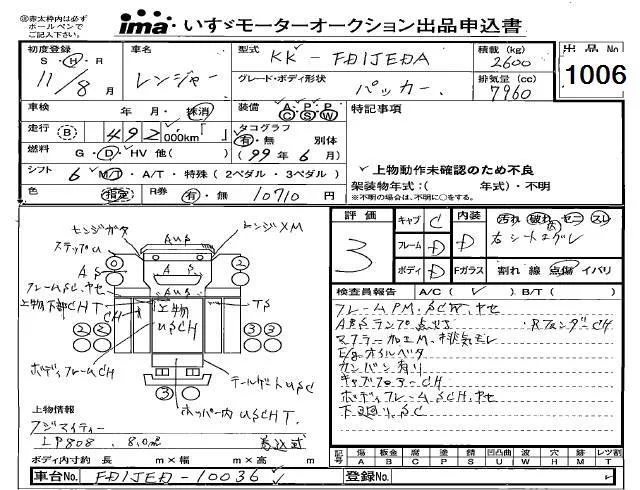 ㊟赤太枠内は必ず
ボールペンで
ご記入下さい。
ima いすゞモーターオークション出品申込書
初度登録
S・H・R
11/8月
車名
レンジャー
型式
KK-FD1JEDA
グレード・ボディ形状
パッカー
積載(kg)
2600
排気量(cc)
7960
出品No
1006
車検
年 月・抹消
装備
A・P・P
C S W
特記事項
走行 B 492 000km「 」
タコグラフ
有・無 別体
(99年6月)
燃料
G・D・HV 他( )
シフト
6 M/T・A/T・特殊(2ペダル・3ペダル)
✓上物動作未確認のため不良
架装物年式:( 年式)・不明
※不明の場合は、不明に○をする。
色 指定
R券 有・無 10710円
評価
3
キャブ C
フレーム D
ボディ D
内装 D
Fガラス
汚れ 破れ セニ スレ
右シート
割れ 線 点傷 イバリ
検査員報告
A/C(✓) B/T( )
フレームPM.SCW.ヤセ
ABSランプ点灯 ・RフェンダーCH
マフラー加工M.排気モレ
E/gオイルベタ
カンバン有り
キャブフロアーCH
ボディフレームSCH.ヤセ
下廻りSC
ステップU
AUS
AS
フレームSC.ヤセ
上物下部CHT
CH
上物
USCH
TS
ボディフレームCH
テールゲートUSC
ホッパー内USCHT.
0
2
2
3
3
3
上物情報
フジマイティー
LP808 8.0m³
巻込式
ボディ内寸約 長 m×幅 m×高 m
記号
傷 板金 腐 塗 錆 凹凸曲 波 穴 跡 レツ割
A B C P S U W H M T
車台No. FD1JED-10036
登録No.